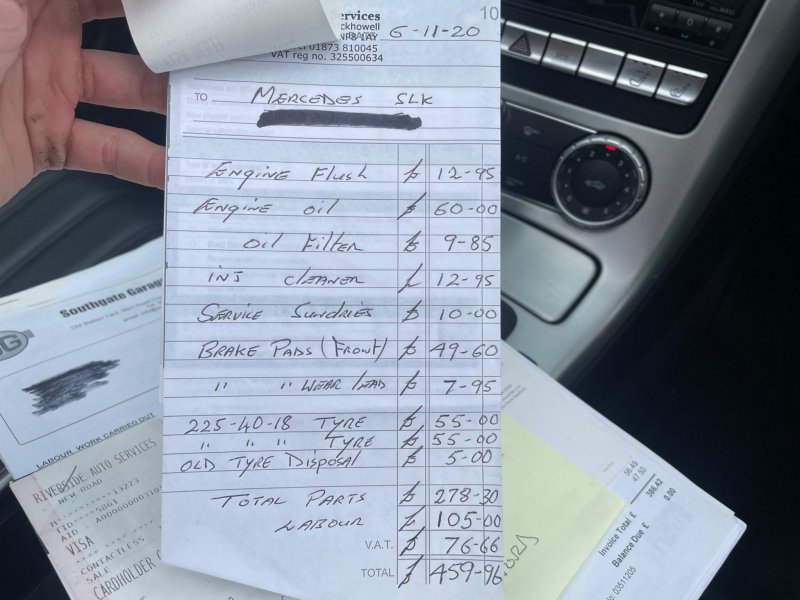 ervices
ckhowell
NP8 1AY
DATE 6-11-20
10
01873 810045
VAT reg no. 325500634
TO MERCEDES SLK
ENGINE Flush £ 12-95
ENGINE oil £ 60-00
oil Filter £ 9-85
INJ CLEANER £ 12-95
SERVICE SUNDRIES £ 10-00
BRAKE PADS (FRONT) £ 49-60
" " WEAR LEAD £ 7-95
225-40-18 TYRE £ 55-00
" " " TYRE £ 55-00
OLD TYRE DISPOSAL £ 5-00
TOTAL PARTS £ 278-30
LABOUR £ 105-00
V.A.T. £ 76-66
TOTAL £ 459-96
Southgate Garag
LABOUR WORK CARRIED OUT
RIVERSIDE AUTO SERVICES
NEW ROAD
VISA
CONTACTLESS
SALE
CARDHOLDER
56.49
47.50
386.42
Invoice Total £
0.00
Balance Due £
03511205